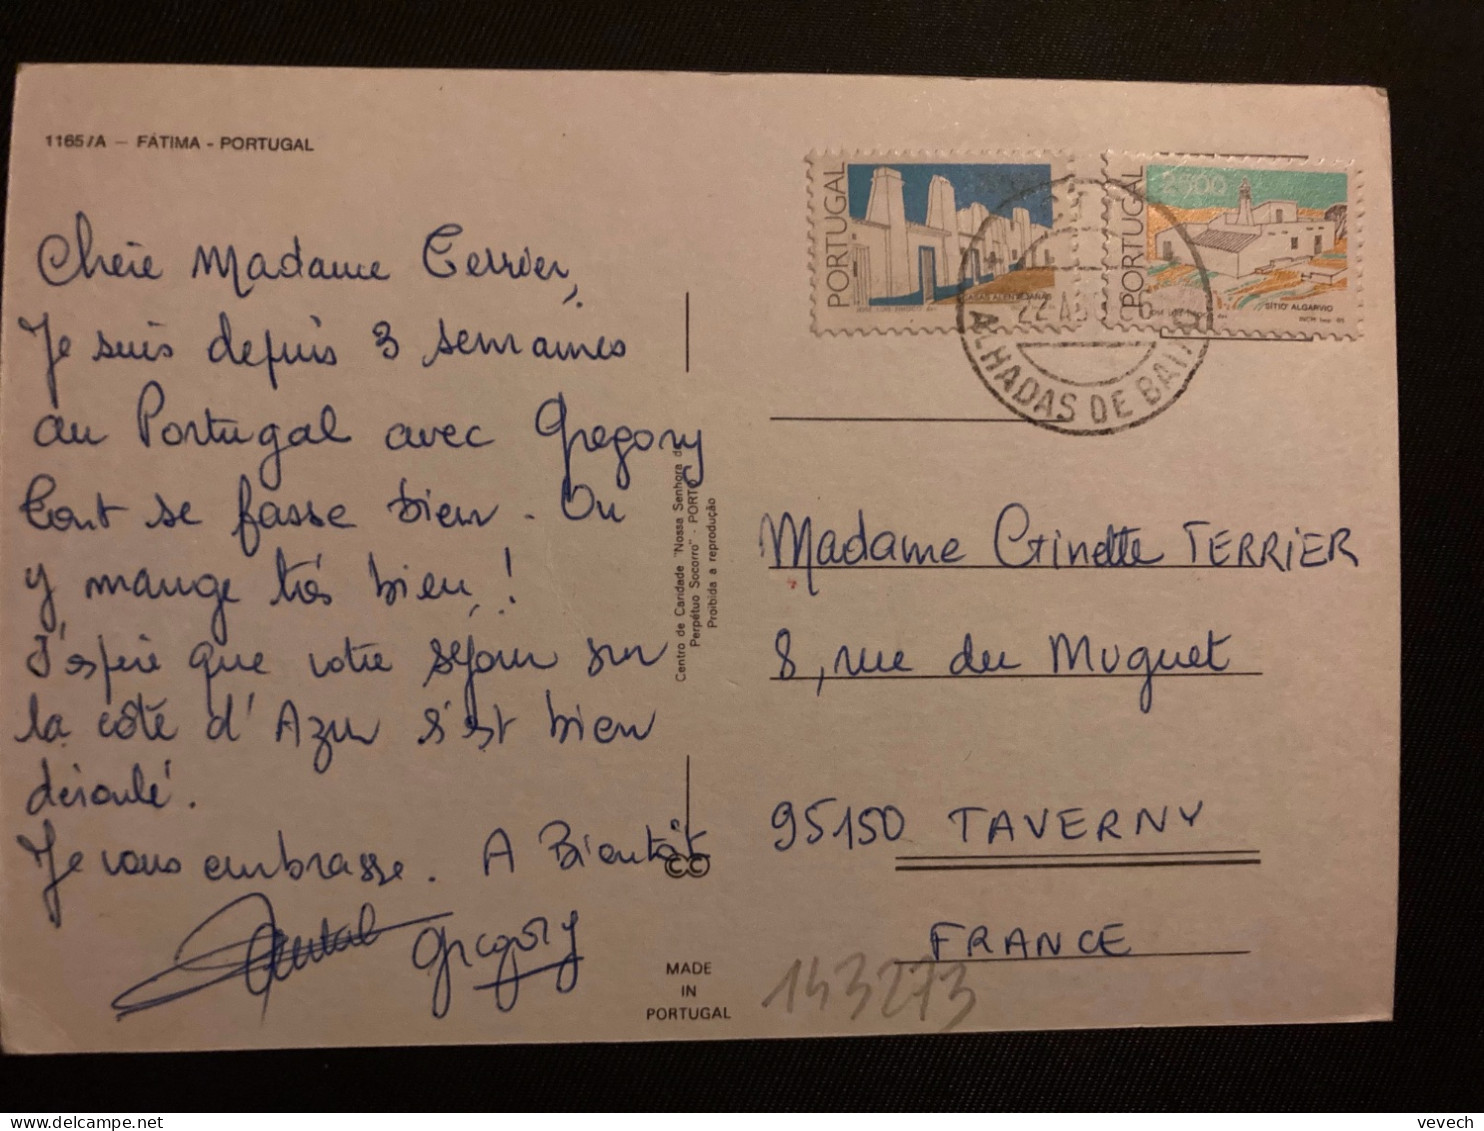 1165/A — FÁTIMA - PORTUGAL
Chère Madame Terrier,
Je suis depuis 3 semaines
au Portugal avec Gregory
tout se passe bien. On
y mange très bien !
J'espère que votre séjour sur
la côte d'Azur s'est bien
déroulé.
Je vous embrasse. A Bientôt
Gregory
Centro de Caridade "Nossa Senhora do
Perpétuo Socorro" - PORTO
Proibida a reprodução
CC
MADE
IN
PORTUGAL
PORTUGAL
CASAS ALENTEJANAS
PORTUGAL
SÍTIO ALGARVIO
22 AGO 86
ALHADAS DE BAIXO
Madame Ginette TERRIER
8, rue du Muguet
95150 TAVERNY
FRANCE
143273
vevech